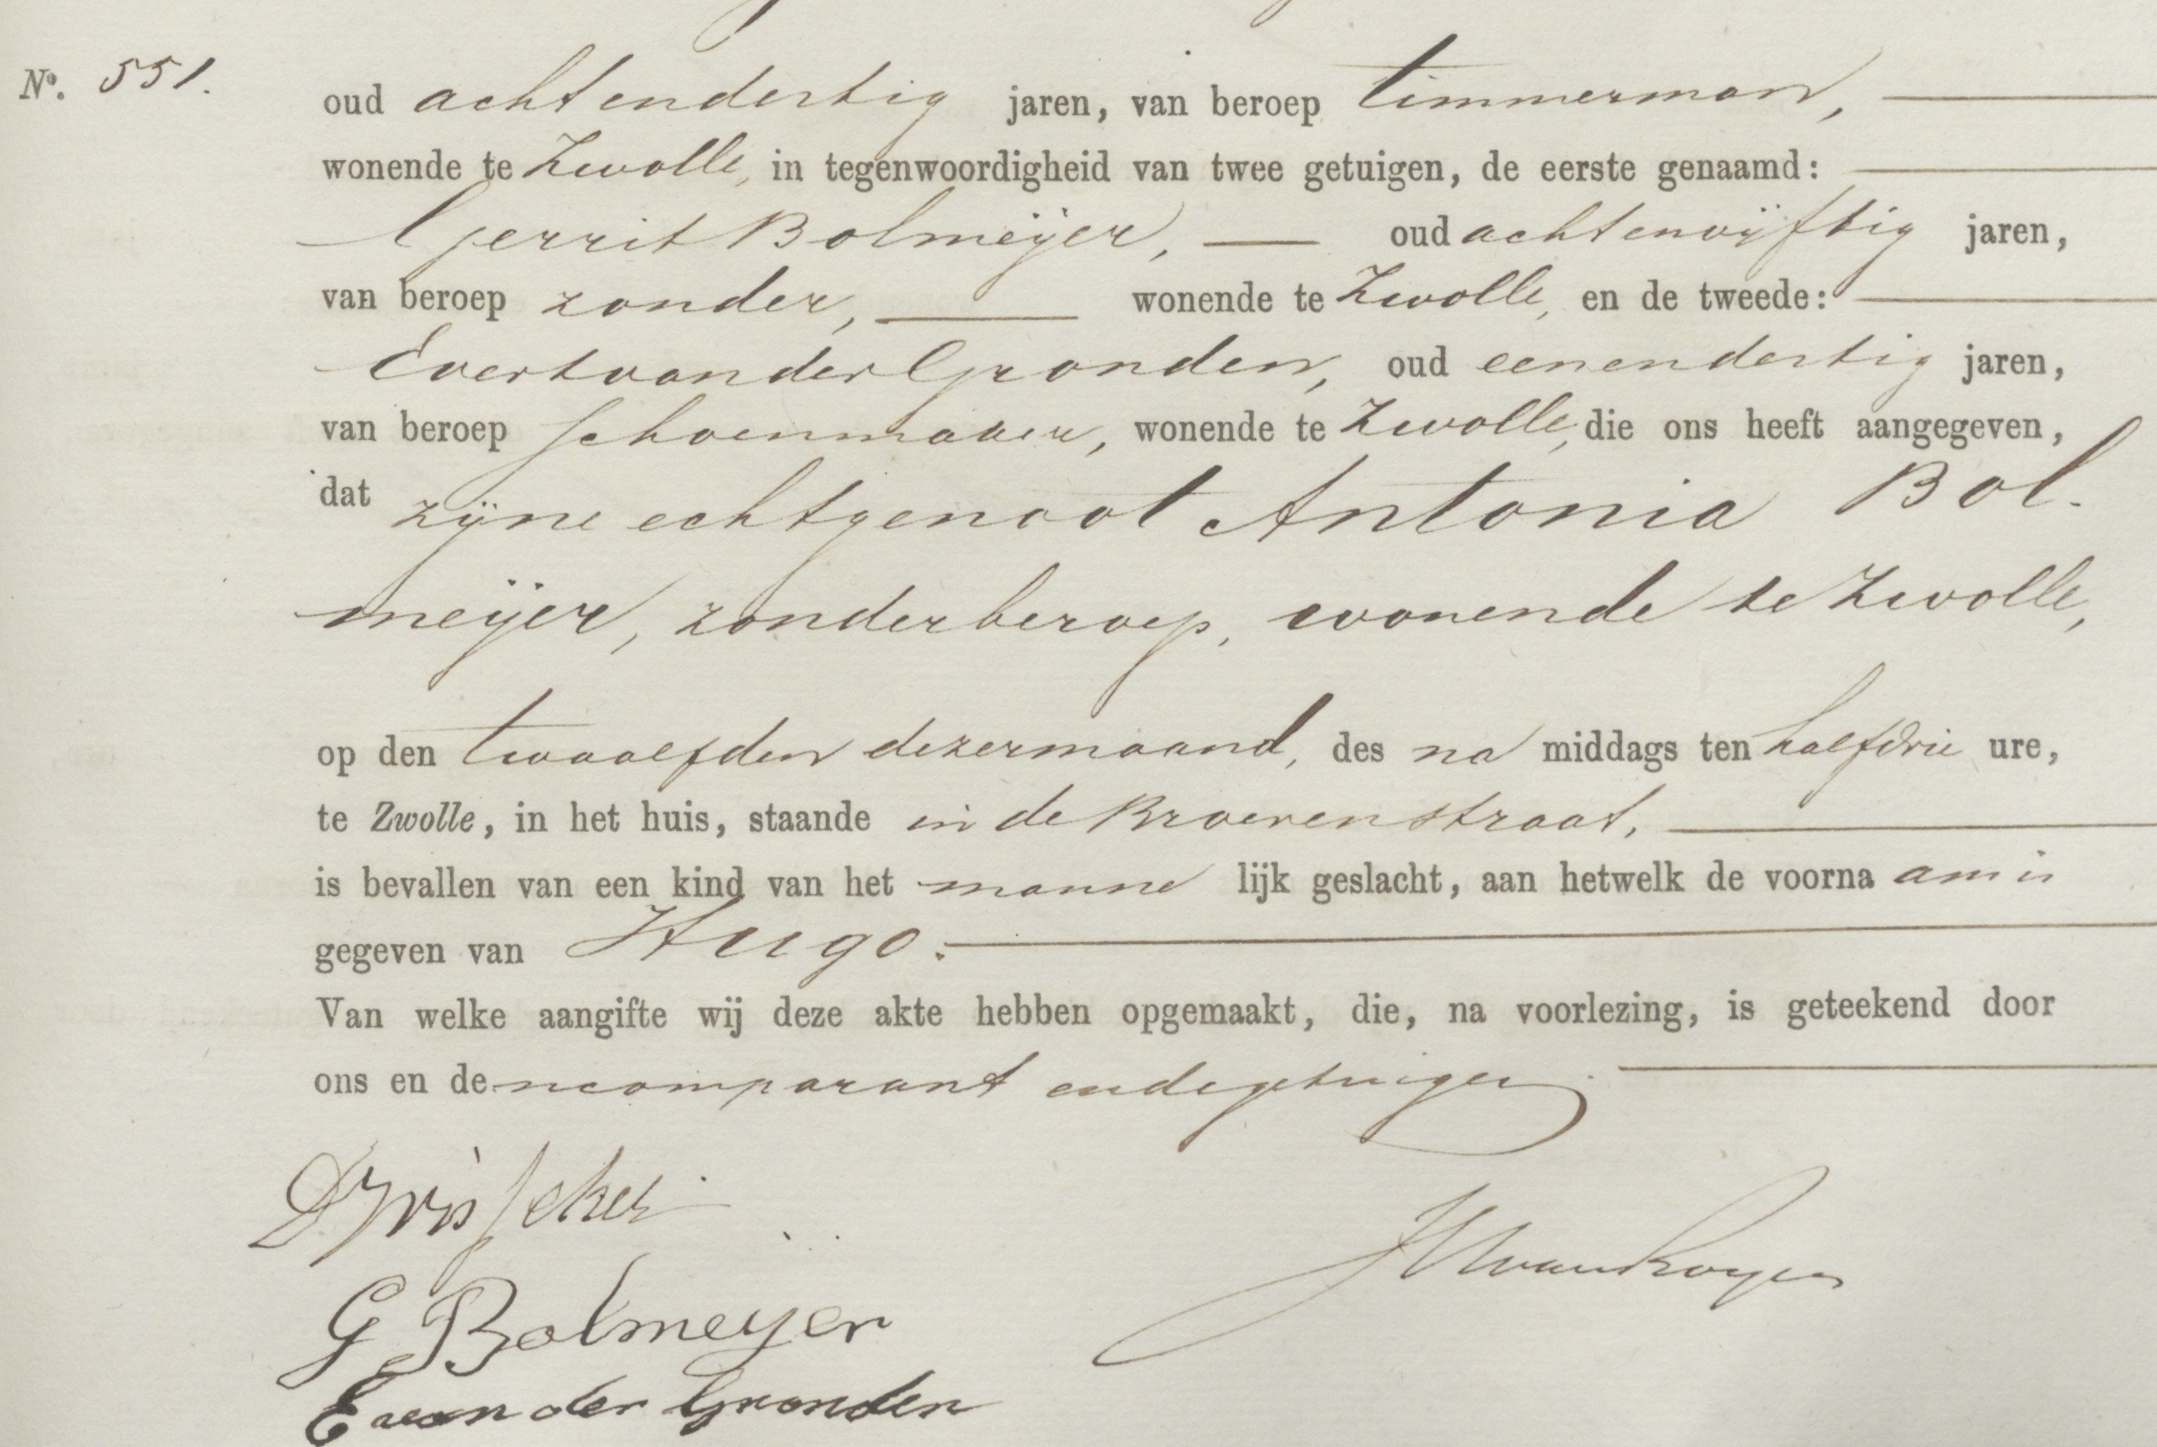 No. 551.
oud achtendertig jaren, van beroep timmerman,
wonende te Zwolle, in tegenwoordigheid van twee getuigen, de eerste genaamd:
Gerrit Bolmeijer, oud achtenvijftig jaren,
van beroep zonder, wonende te Zwolle, en de tweede:
Evert van der Gronden, oud eenendertig jaren,
van beroep schoenmaker, wonende te Zwolle, die ons heeft aangegeven,
dat zijne echtgenoot Antonia Bol-
meijer, zonder beroep, wonende te Zwolle,
op den twaalfden dezer maand, des na middags ten half drie ure,
te Zwolle, in het huis, staande in de Broerenstraat,
is bevallen van een kind van het manne lijk geslacht, aan hetwelk de voorna am is
gegeven van Hugo.
Van welke aangifte wij deze akte hebben opgemaakt, die, na voorlezing, is geteekend door
ons en den comparant en de getuigen.
Visscher
G Bolmeyer
E van der Gronden